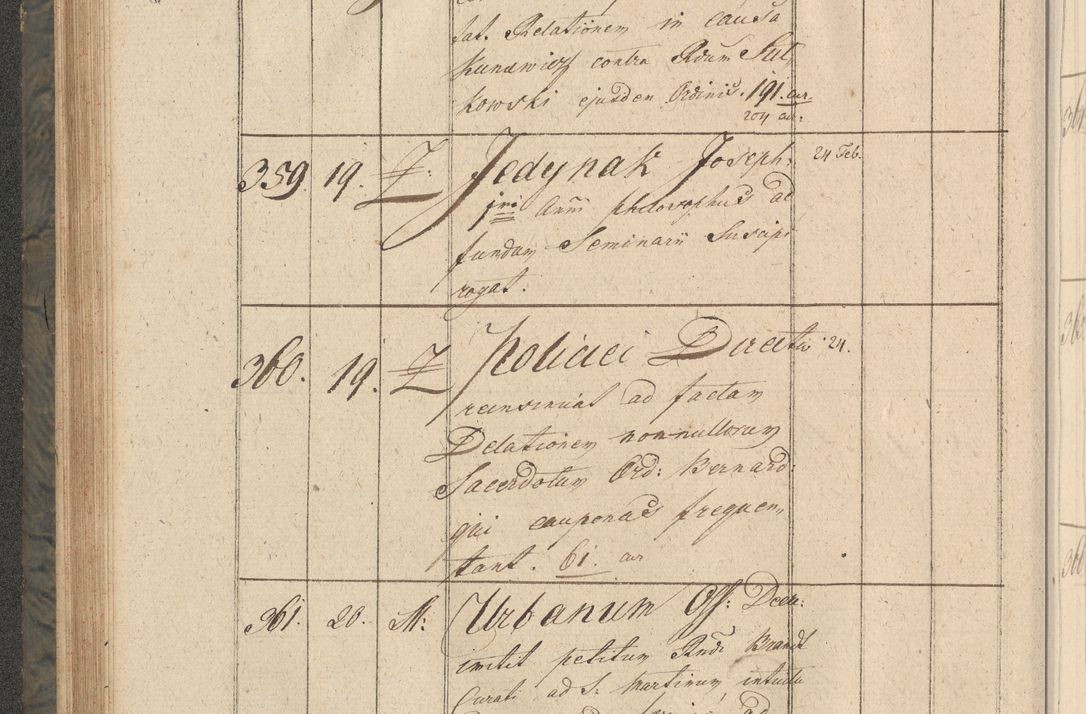 fat. Relationem in causa
Kunawicz contra Rdum Sut,
kowski ejusdem Ordinis. 191. cur.
204 cur:
359. 19. Z. Jedynak Joseph: 24 Feb.
jri Anni philosophus ad
fundam Seminarii Suscipi
rogat.
360. 19. Z Policiei Directio 24.
ad factam
Delationem nonnullorum
Sacerdotum Ord: Bernard:
qui cauponas frequen„
tant. 61. cur
361. 20. M: Urbanum Off: Decr:
petitum Rndi Brandt
Curati ad S: Martinum intuitu
ad
36
36
36